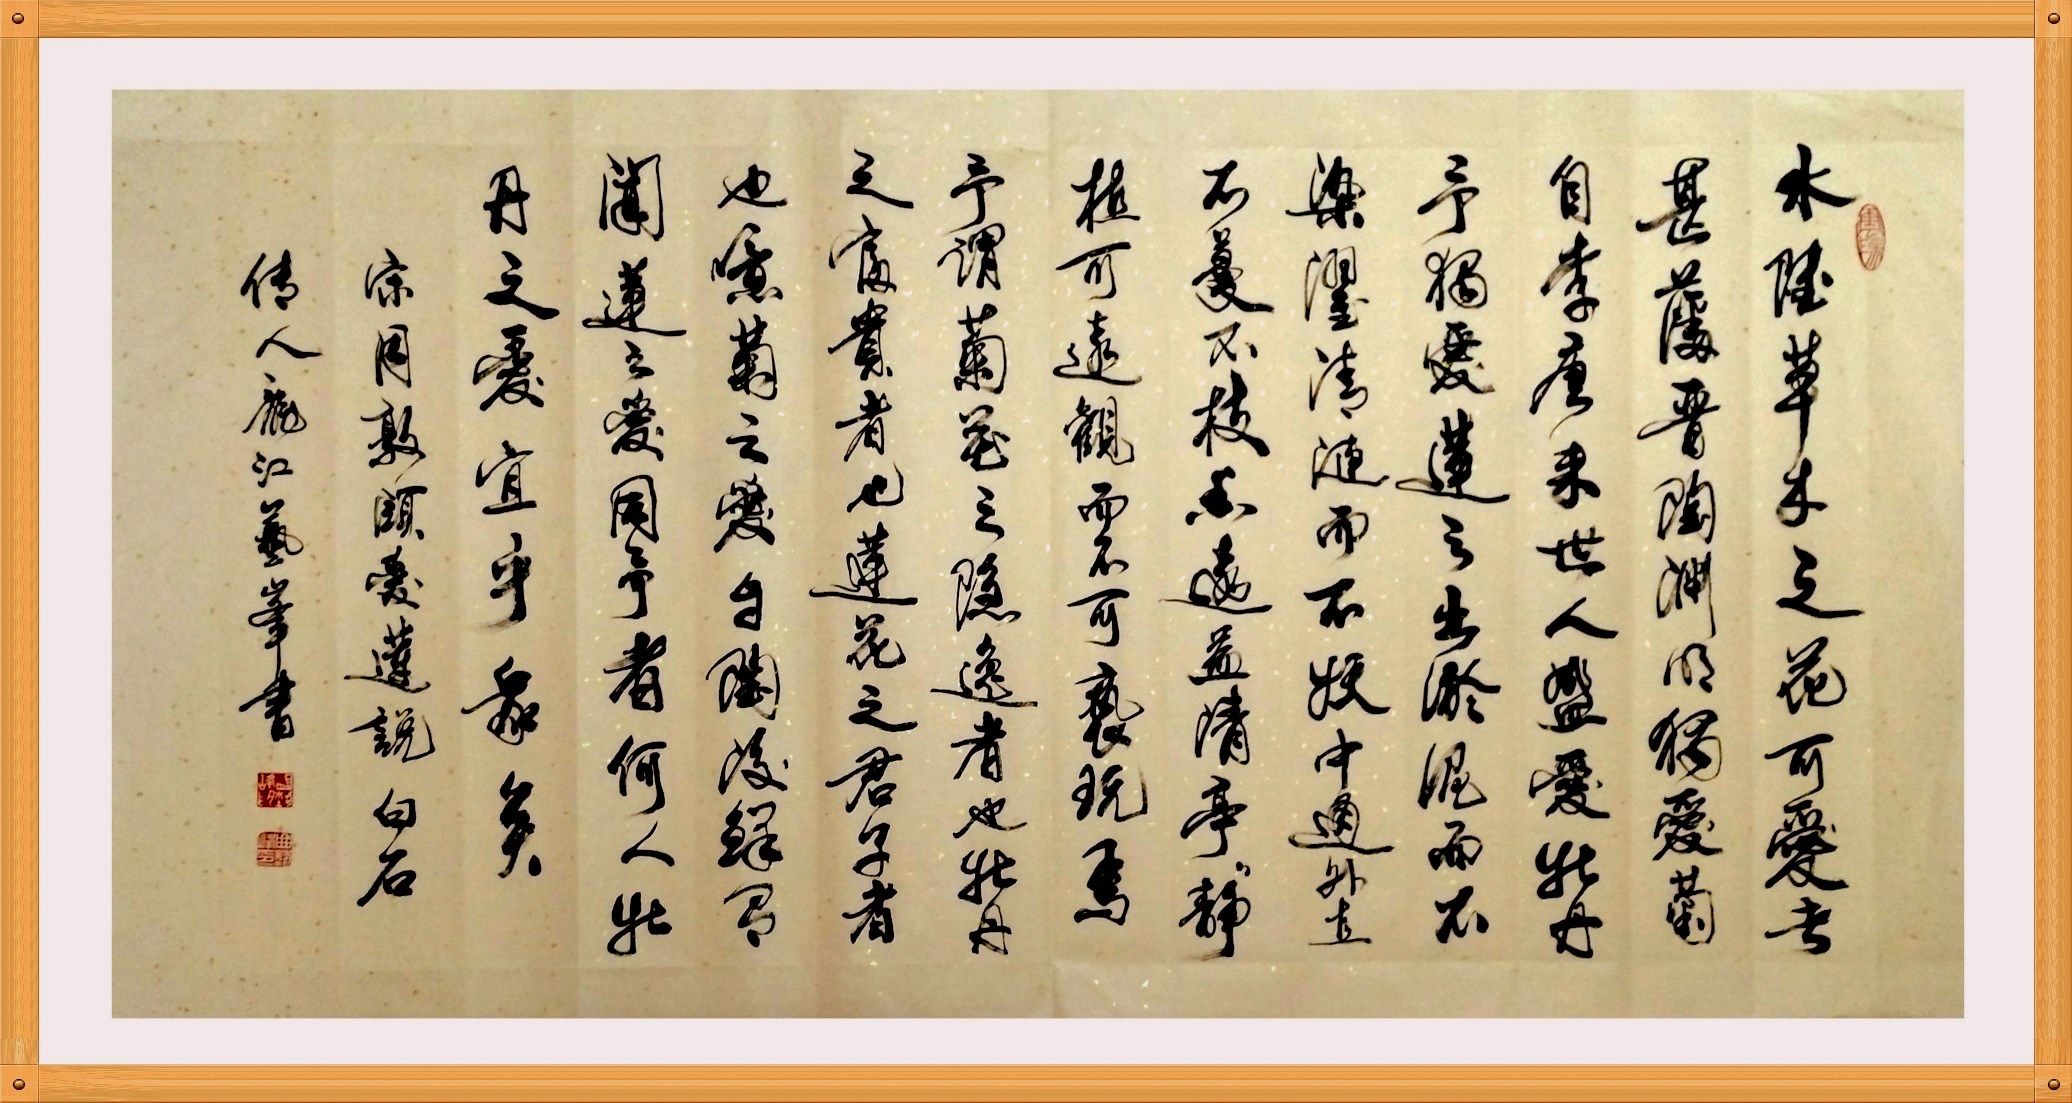 水陸草木之花可愛者
甚蕃晉陶淵明獨愛菊
自李唐来世人盛愛牡丹
予獨愛蓮之出淤泥而不
染濯清漣而不妖中通外直
不蔓不枝香遠益清亭亭靜
植可遠觀而不可褻玩焉
予謂菊花之隐逸者也牡丹
之富貴者也蓮花之君子者
也噫菊之愛自陶後鮮有
聞蓮之愛同予者何人牡
丹之愛宜乎衆矣
宗周敦頤愛蓮説白石
倩人龍江藝峯書